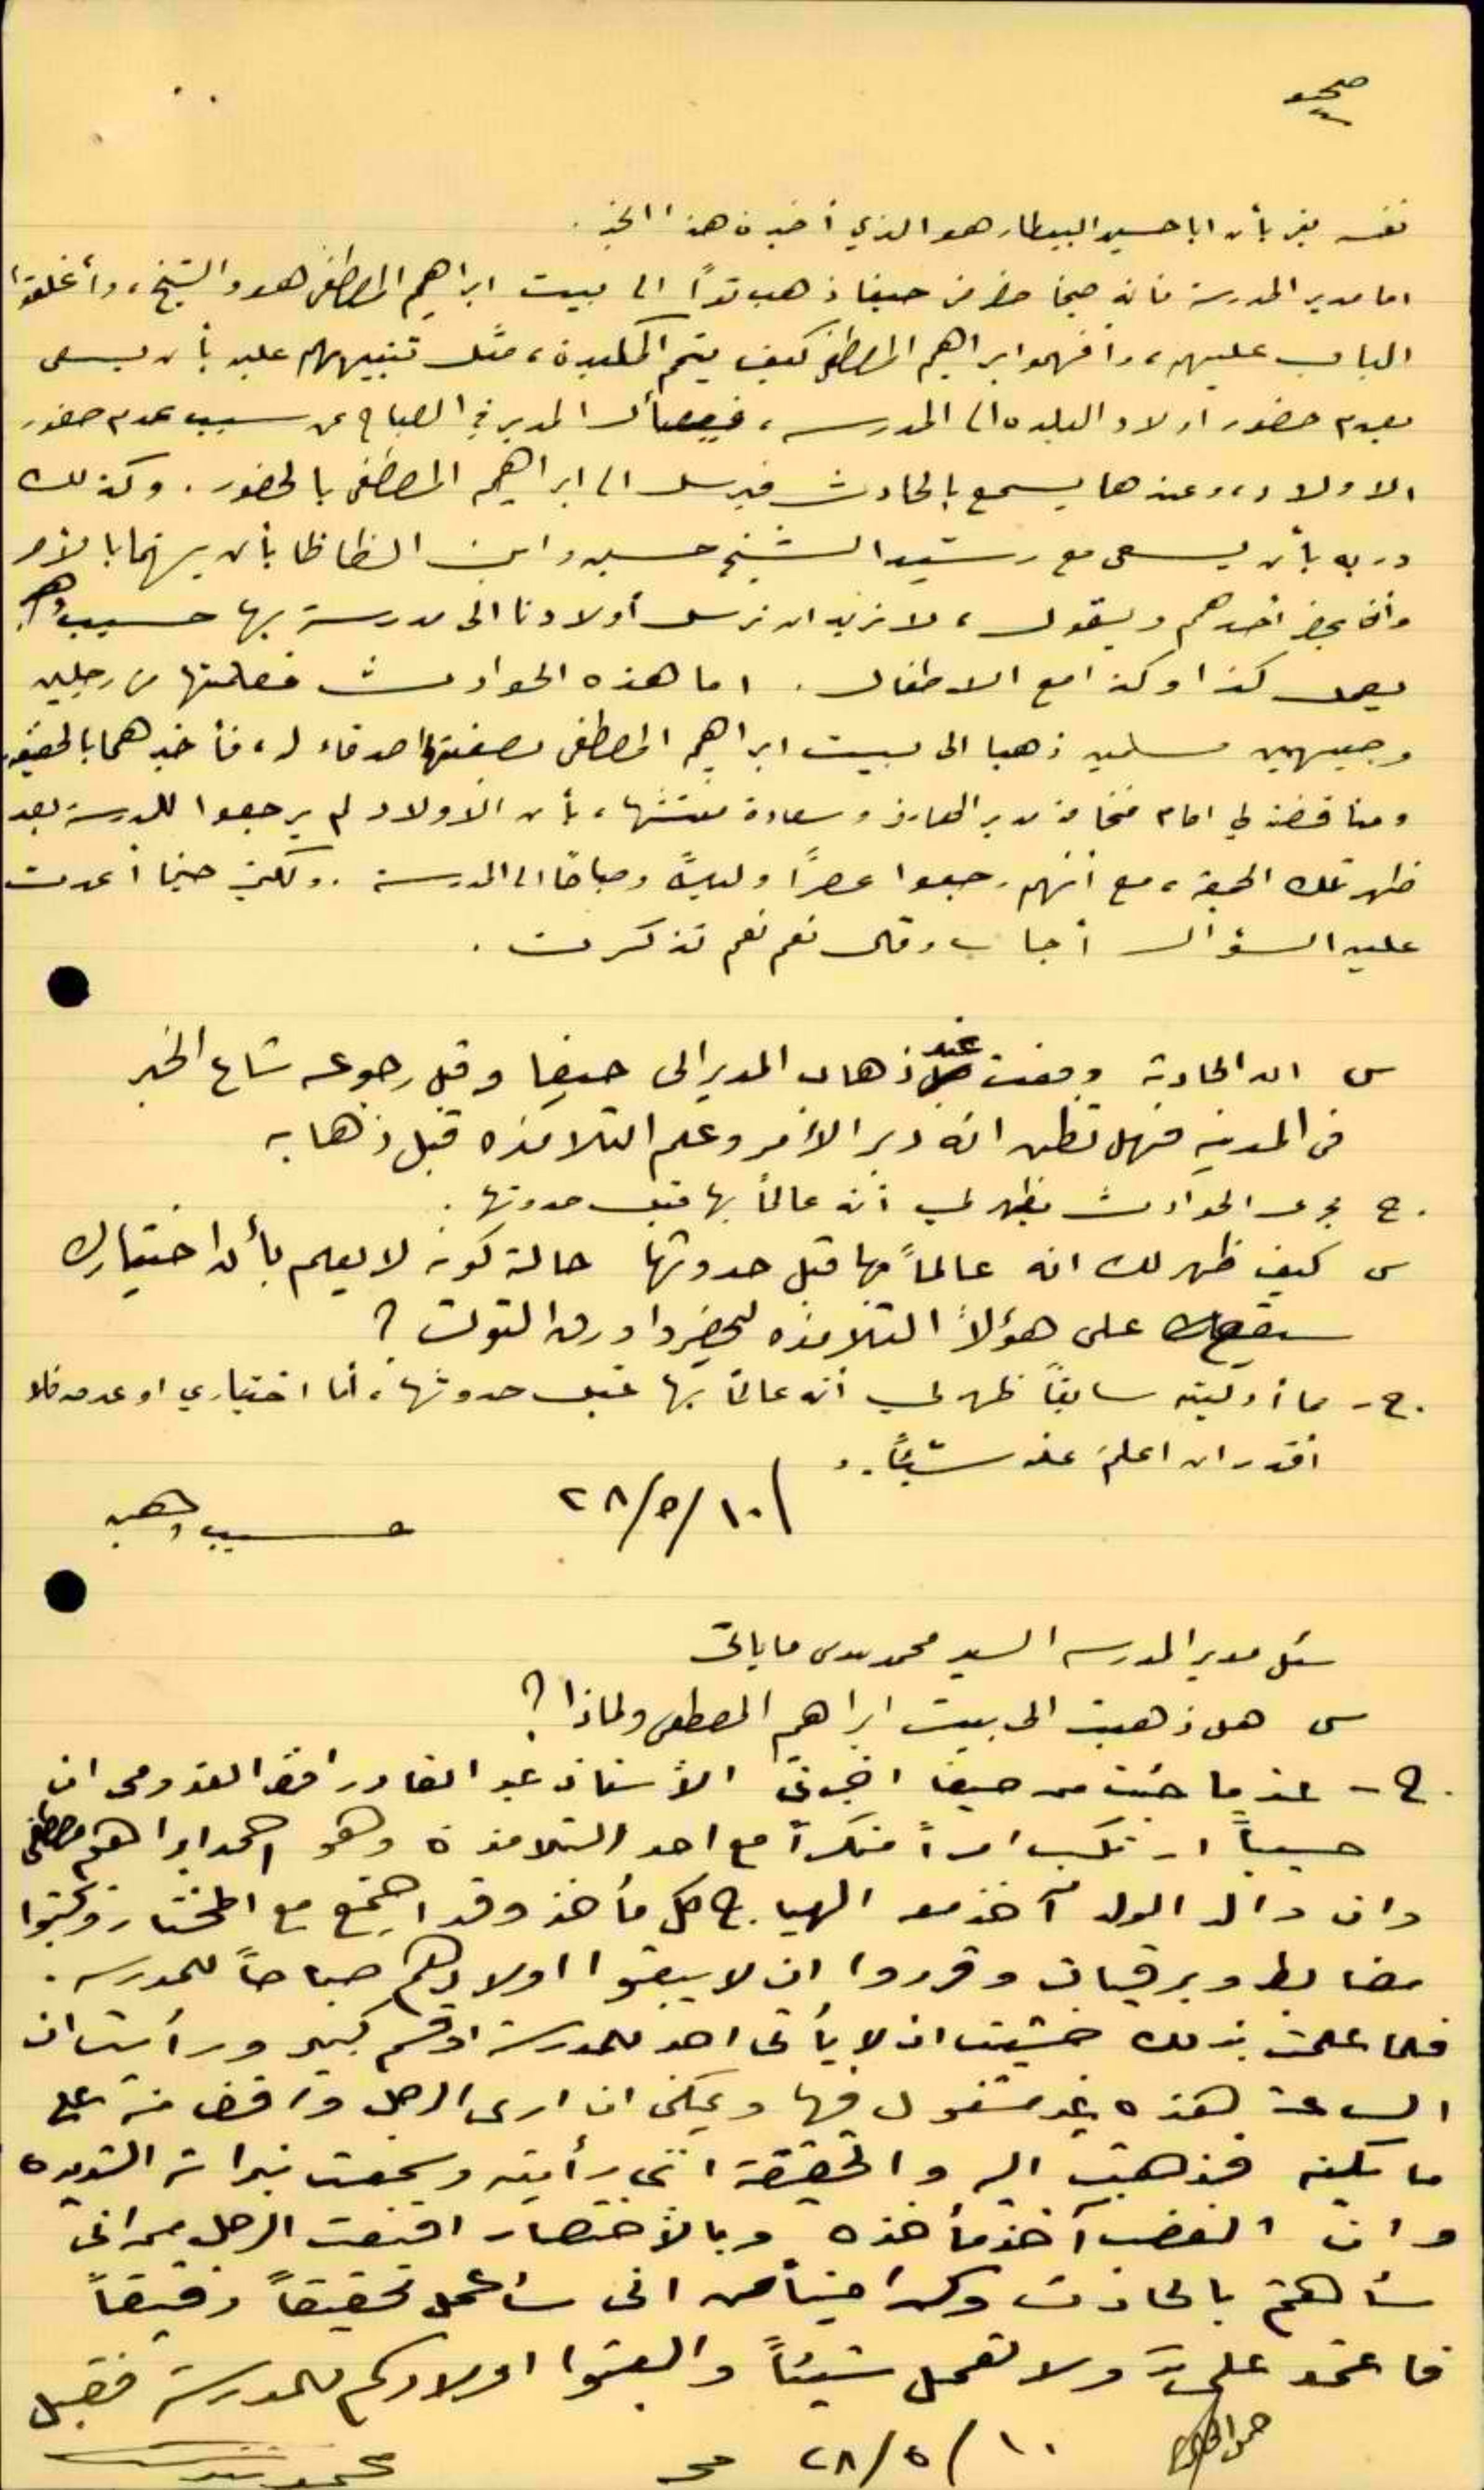 نفسه يقر بأن ابا حسين البيطار هو الذي أخبره هذا الخبر.
اما مدير المدرسة فانه حينما حضر من حيفا ذهب تواً الى بيت ابراهيم المصطفى هو والشيخ، وأغلقوا
الباب عليهم، وافهموا ابراهيم المصطفى كيف يتم المكيدة، مثل تنبيههم عليه بأن يسعى
بعدم حضور اولاد البلده الى المدرسه، فيسأل المدير في الصباح عن سبب عدم حضور
الاولاد، وعندها يسمع بالحادث فيرسل الى ابراهيم المصطفى بالحضور. وكذلك
دربه بأن يسعى مع رشيد الشيخ حسين وابن الظاظا بأن يهتما بالأمر
وأن يحضر أحدهم ويقول، لا نريد ان نرسل أولادنا الى مدرسة بها حسيب وهبه
يعمل كذا وكذا مع الاطفال. اما هذه الحوادث فعلمتها من رجلين
وجيهين مسلمين ذهبا الى بيت ابراهيم المصطفى بصفتهما اصدقاء له، فأخبرهما بالحقيقة.
ومناقضته لي امام فخامة مدير المعارف وسعادة مفتشها، بأن الاولاد لم يرجعوا للمدرسة بعد
ظهر تلك الجمعة، مع أنهم رجعوا عصراً وليلاً وصباحاً الى المدرسة. ولكن حينما أعدت
عليه السؤال أجاب وقال نعم نعم تذكرت.
س ان الحادثة وقعت عند ذهاب المدير الى حيفا وقبل رجوعه شاع الخبر
في المدينه فهل تظن انه دبر الأمر وعلم التلامذه قبل ذهابه
ج مجرى الحوادث يظهر لي أنه عالماً بها قبل حدوثها.
س كيف ظهر لك انه عالماً بها قبل حدوثها حالة كونه لا يعلم بأن اختيارك
سيقع على هؤلاء التلامذه ليحضروا ورق التوت ؟
ج - مما أدليته سابقاً ظهر لي أنه عالماً بها قبل حدوثها، أما اختياري او عدمه فلا
اقدر ان اعلم عنه شيئاً.
٢٨/٥/١٠ حسيب وهبه
سئل مدير المدرسه السيد محمد
س هل ذهبت الى بيت ابراهيم المصطفى ولماذا ؟
ج - عندما جئت من حيفا اخبرني الأستاذ عبد القادر افندي القدومى ان
حسيباً ارتكب امراً منكراً مع احد التلامذة وهو احمد ابراهيم مصطفى
وان والد الولد آخذ معه الهياج كل مأخذ وقد اجتمع مع المختار وكتبوا
مضابط وبرقيات وقرروا ان لا يبعثوا اولادهم صباحاً للمدرسه.
فلما علمت بذلك خشيت ان لا يأتى احد للمدرسة او قسم كبير ورأيت ان
الساعة هذه غير مشغول فيها ويمكن ان ارى الرجل
فذهبت اليه والحقيقة اننى رأيته وسمعت نبراته الشديده
وان الغضب آخذ مأخذه وبالأختصار اقنعت الرجل انى
سأهتم بالحادث وكن انى سأعمل تحقيقاً دقيقاً
فاعتمد علىّ ولا تعمل شيئاً وابعثوا اولادكم للمدرسة فقبل
٢٨/٥/١٠